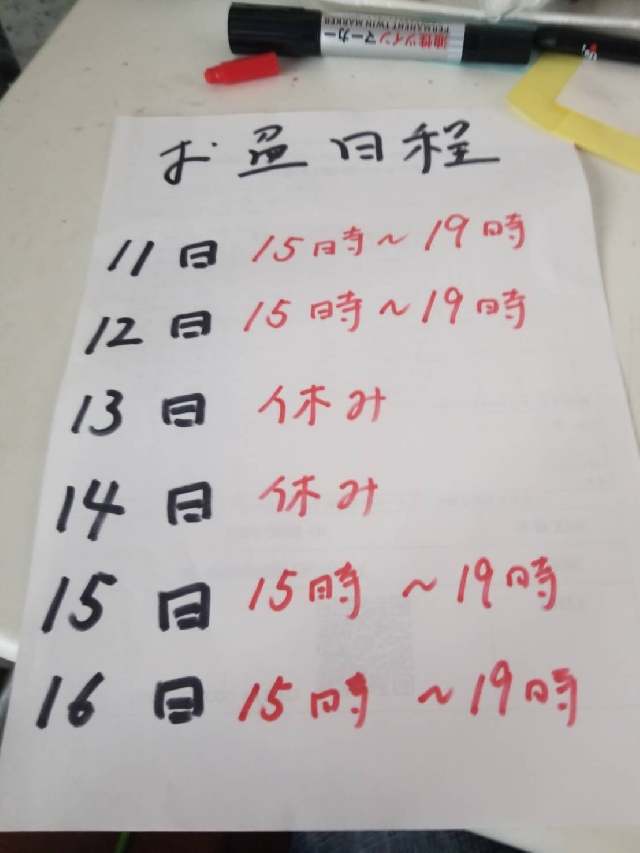 油性ツインマーカー
PERMANENT TWIN MARKER
お盆日程
11日 15時～19時
12日 15時～19時
13日 休み
14日 休み
15日 15時～19時
16日 15時～19時